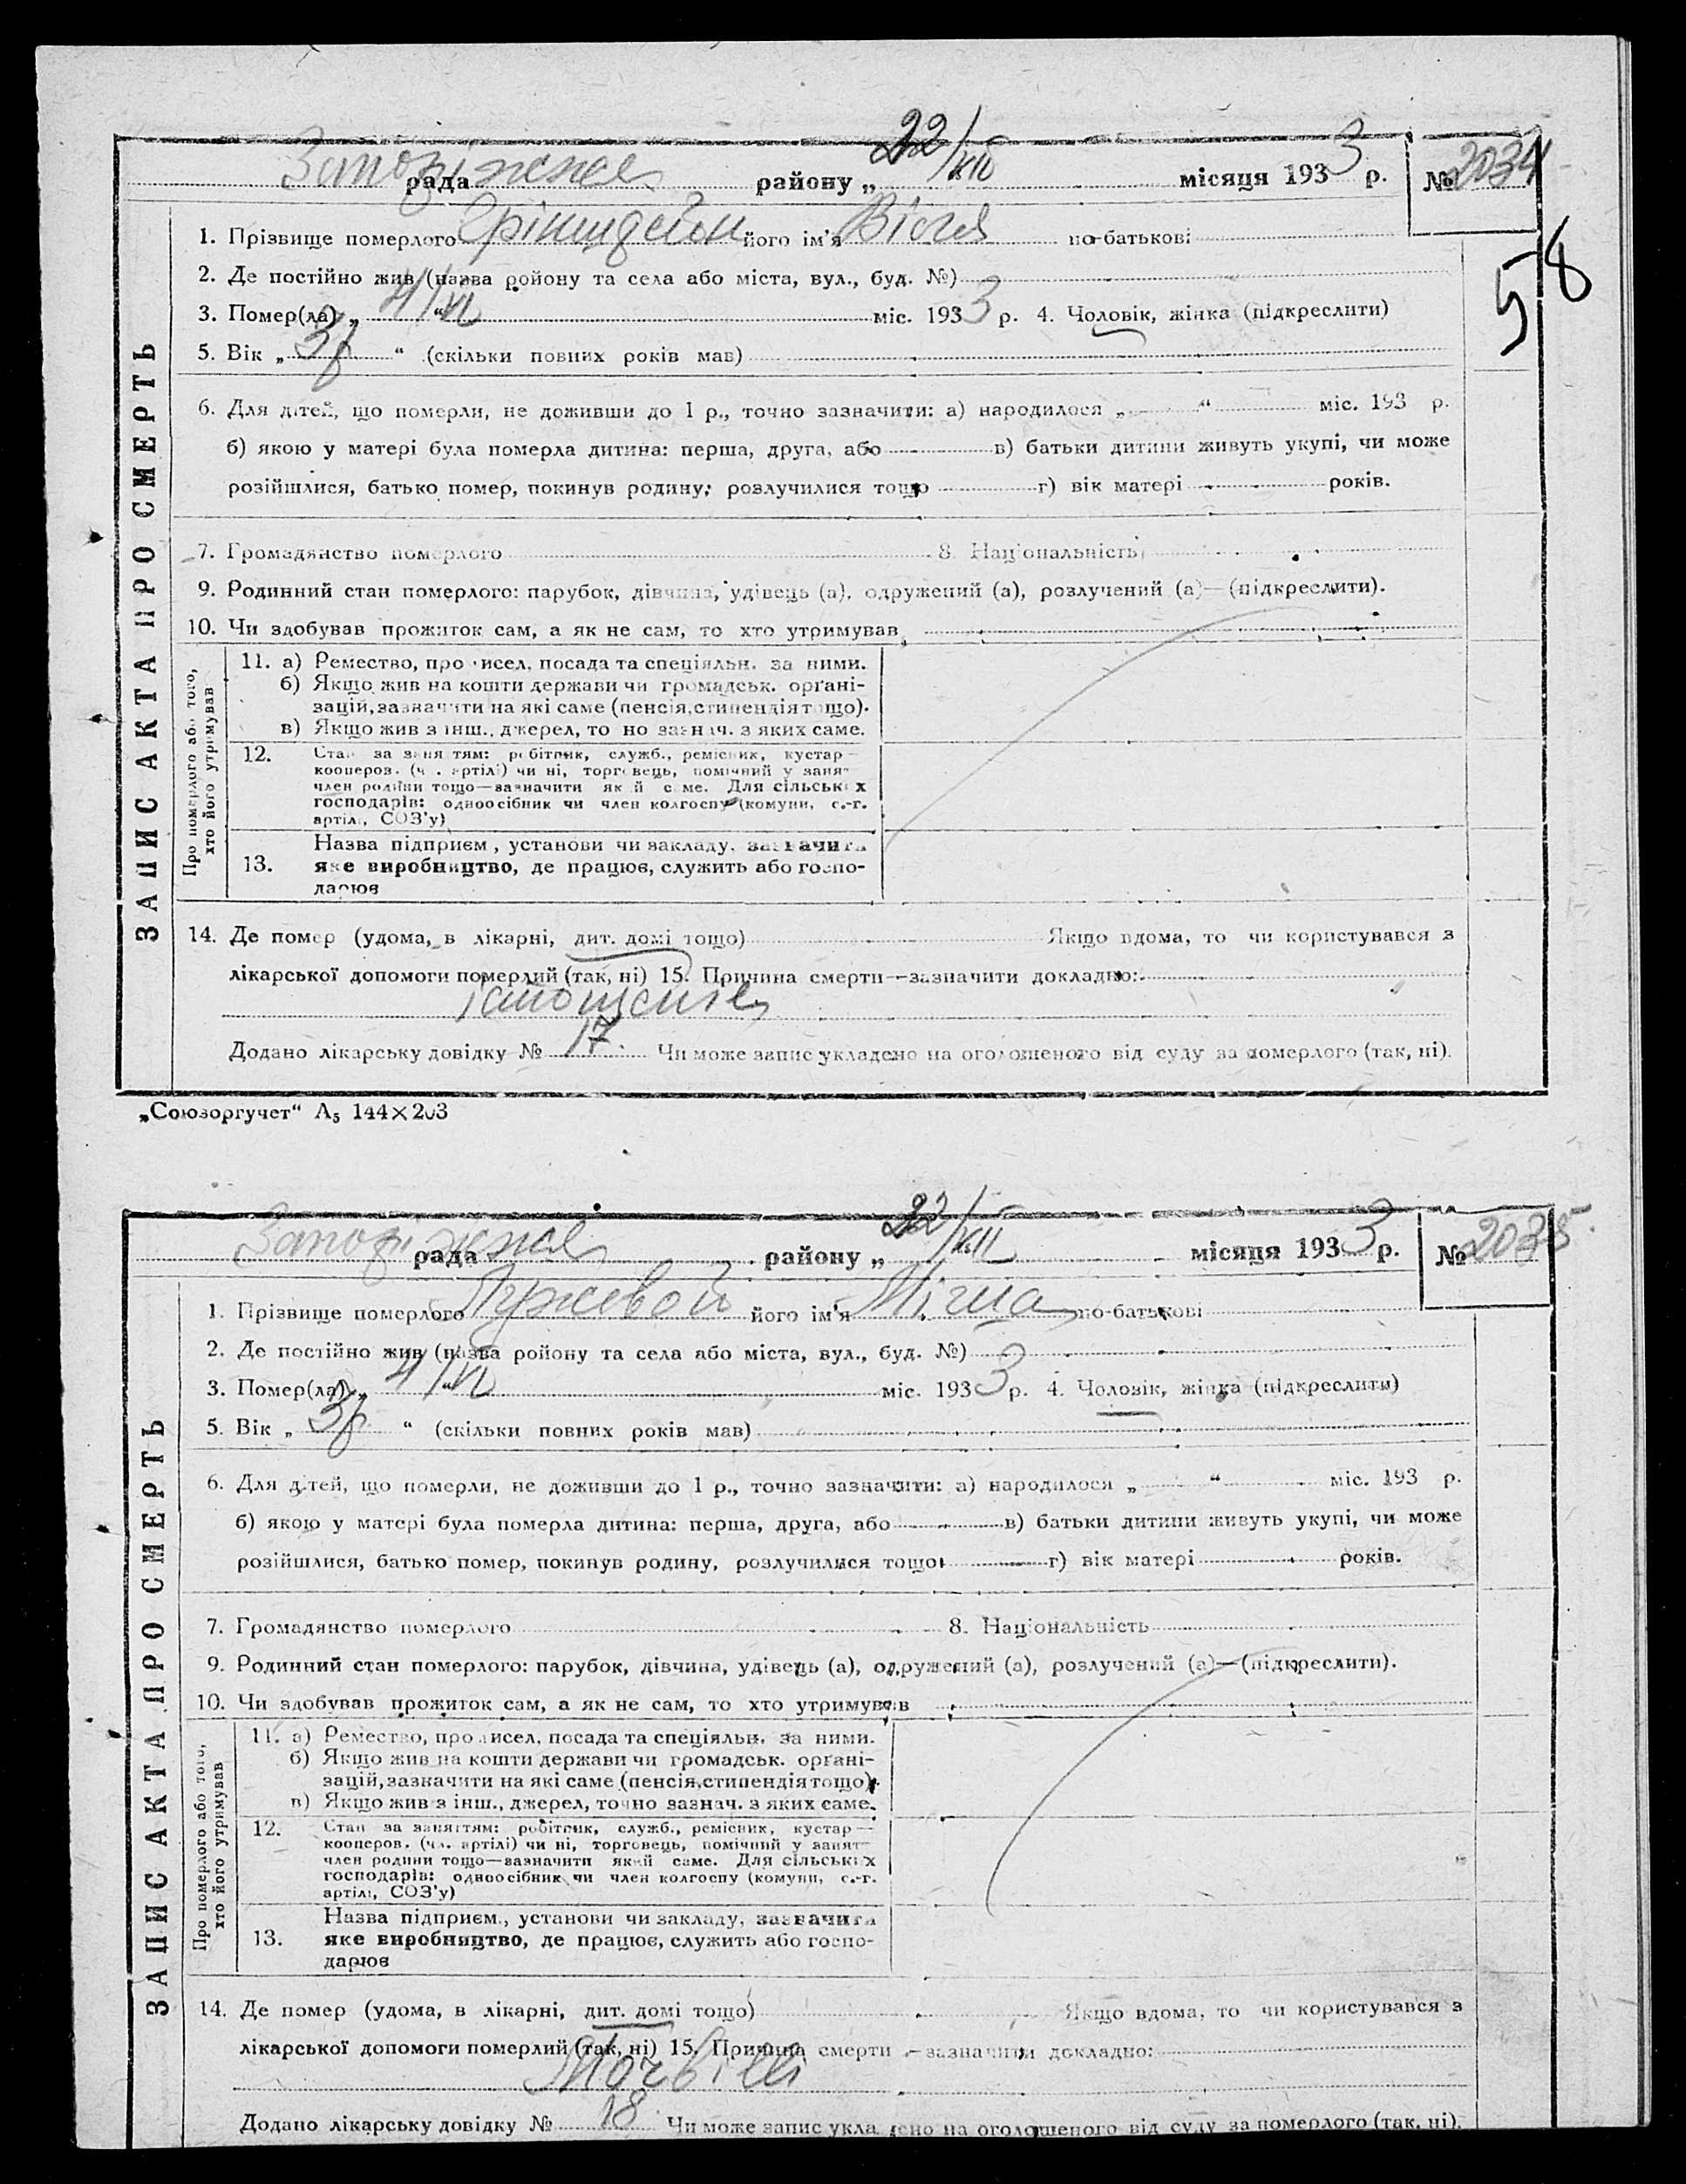 Запоріжжя рада району „22/XII“ місяця 1933 р. № 2034
58
ЗАПИС АКТА ПРО СМЕРТЬ
1. Прізвище померлого його ім'я Вітя по-батькові
2. Де постійно жив (назва ройону та села або міста, вул., буд. №)
3. Помер(ла) „4/VI“ міс. 1933 р. 4. Чоловік, жінка (підкреслити)
5. Вік „3р“ (скільки повних років мав)
6. Для дітей, що померли, не доживши до 1 р., точно зазначити: а) народилося „ “ міс. 193 р.
б) якою у матері була померла дитина: перша, друга, або в) батьки дитини живуть укупі, чи може
розійшлися, батько помер, покинув родину, розлучилися тощо г) вік матері років.
7. Громадянство померлого 8. Національність
9. Родинний стан померлого: парубок, дівчина, удівець (а), одружений (а), розлучений (а)—(підкреслити).
10. Чи здобував прожиток сам, а як не сам, то хто утримував
Про померлого або того, хто його утримував
11. а) Ремество, про исел, посада та спеціяльн. за ними.
б) Якщо жив на кошти держави чи громадськ. орґані-
зацій, зазначити на які саме (пенсія, стипендія тощо).
в) Якщо жив з інш., джерел, то но зазнач. з яких саме.
12. Стан за заняттям: робітник, служб., ремісник, кустар—
кооперов. (чл. артілі) чи ні, торговець, помічний у занят-
член родини тощо—зазначити який саме. Для сільських
господарів: одноосібник чи член колгоспу (комуни, с.-г.
артілі, СОЗ'у)
Назва підприєм., установи чи закладу, зазначити
13. яке виробництво, де працює, служить або госпо-
дарює
14. Де помер (удома, в лікарні, дит. домі тощо) Якщо вдома, то чи користувався з
лікарської допомоги померлий (так, ні) 15. Причина смерти—зазначити докладно:
Додано лікарську довідку № 17. Чи може запис укладено на оголошеного від суду за померлого (так, ні).
„Союзоргучет“ А₅ 144×203
Запоріжжя рада району „22/XII“ місяця 1933 р. № 2035.
ЗАПИС АКТА ПРО СМЕРТЬ
1. Прізвище померлого Пужевой його ім'я Міша по-батькові
2. Де постійно жив (назва ройону та села або міста, вул., буд. №)
3. Помер(ла) „4/VI“ міс. 1933 р. 4. Чоловік, жінка (підкреслити)
5. Вік „3р“ (скільки повних років мав)
6. Для дітей, що померли, не доживши до 1 р., точно зазначити: а) народилося „ “ міс. 193 р.
б) якою у матері була померла дитина: перша, друга, або в) батьки дитини живуть укупі, чи може
розійшлися, батько помер, покинув родину, розлучилися тощо г) вік матері років.
7. Громадянство померлого 8. Національність
9. Родинний стан померлого: парубок, дівчина, удівець (а), одружений (а), розлучений (а)—(підкреслити).
10. Чи здобував прожиток сам, а як не сам, то хто утримував
Про померлого або того, хто його утримував
11. а) Ремество, про исел, посада та спеціяльн. за ними.
б) Якщо жив на кошти держави чи громадськ. орґані-
зацій, зазначити на які саме (пенсія, стипендія тощо).
в) Якщо жив з інш., джерел, точно зазнач. з яких саме.
12. Стан за заняттям: робітник, служб., ремісник, кустар—
кооперов. (чл. артілі) чи ні, торговець, помічний у занят-
член родини тощо—зазначити який саме. Для сільських
господарів: одноосібник чи член колгоспу (комуни, с.-г.
артілі, СОЗ'у)
Назва підприєм., установи чи закладу, зазначити
13. яке виробництво, де працює, служить або госпо-
дарює
14. Де помер (удома, в лікарні, дит. домі тощо) Якщо вдома, то чи користувався з
лікарської допомоги померлий (так, ні) 15. Причина смерти—зазначити докладно:
Morbilli
Додано лікарську довідку № 18. Чи може запис укладено на оголошеного від суду за померлого (так, ні).